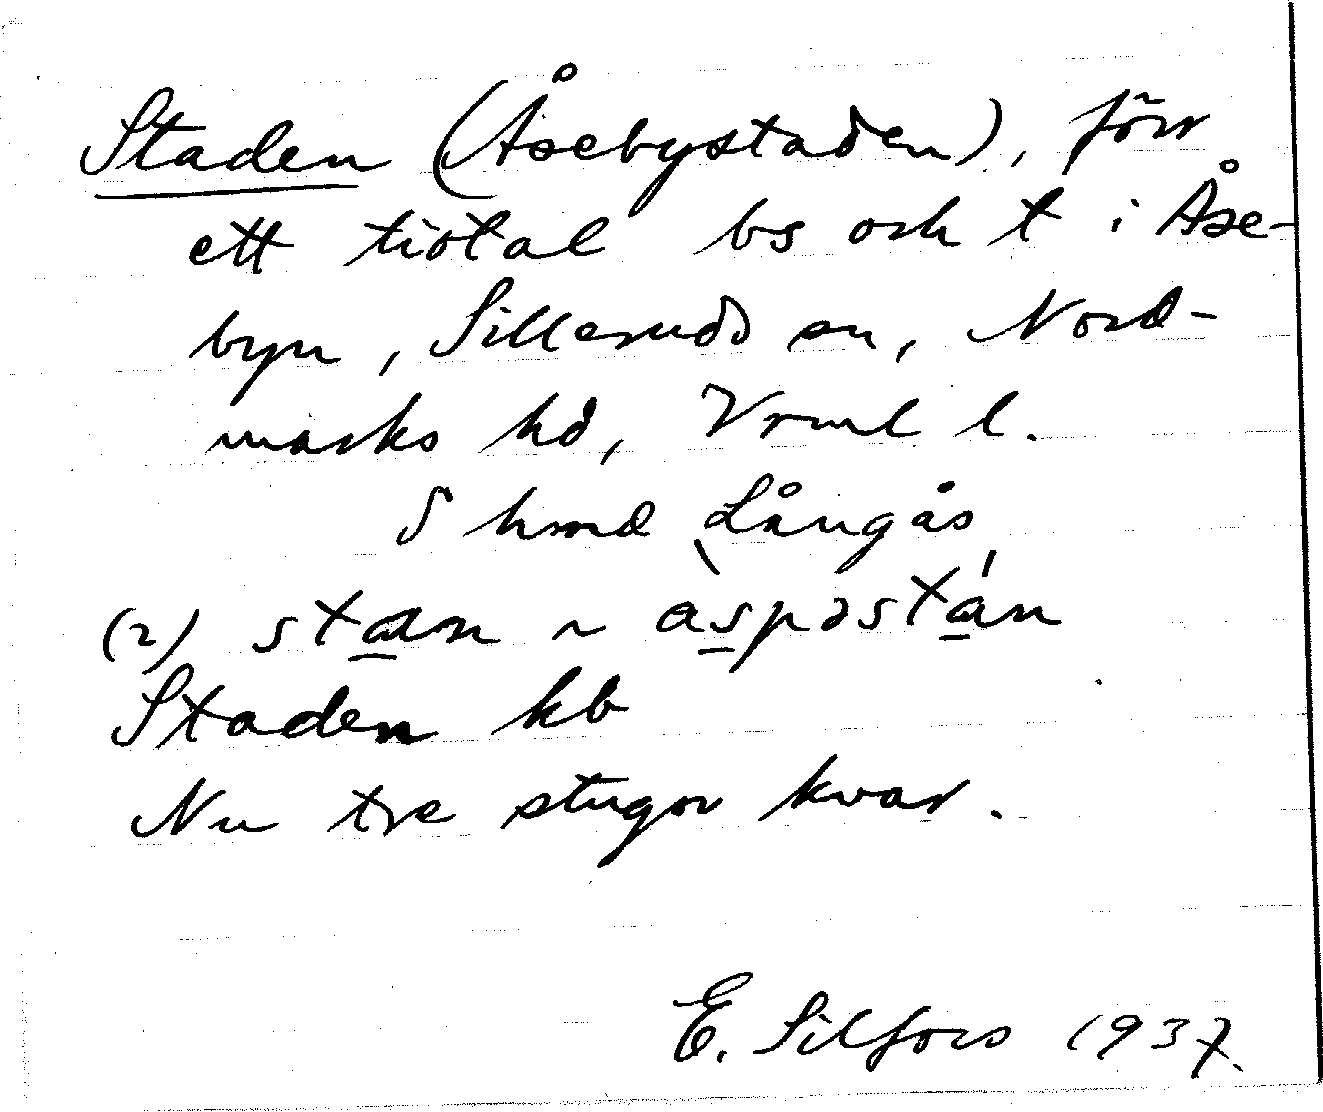 Staden (Åsebystaden), förr
ett tiotal bs och t i Åse-
byn, Silleruds sn, Nord-
marks hd, Vrml l.
S hmd Långås
(2) stan ~ àspəstán
Staden kb
Nu tre stugor kvar.
E. Silfors 1937.